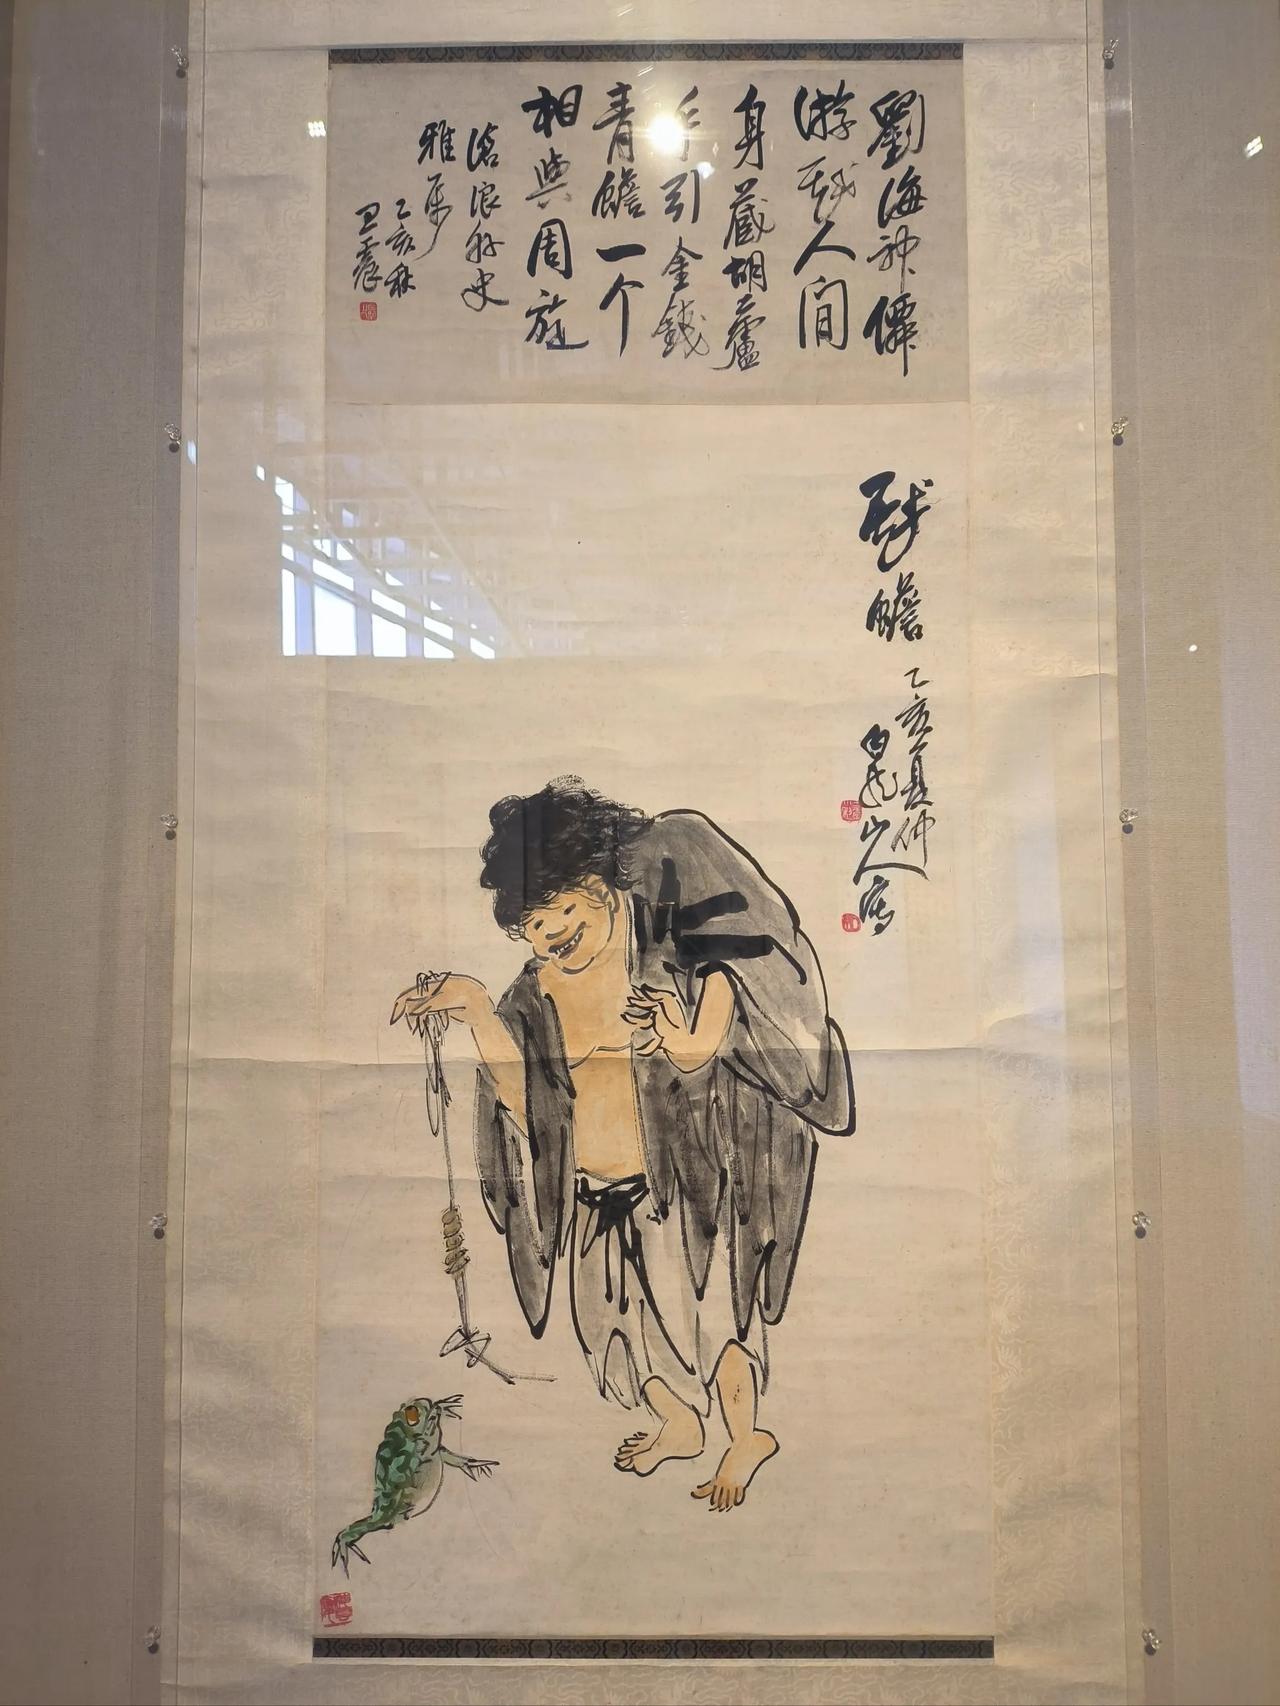 劉海神僊
游戲人間
身藏胡蘆
手引金錢
青蟾一个
相與周旋
滄浪外史
雅屬
乙亥秋
王震
戲蟾
乙亥夏仲
白龍山人寫